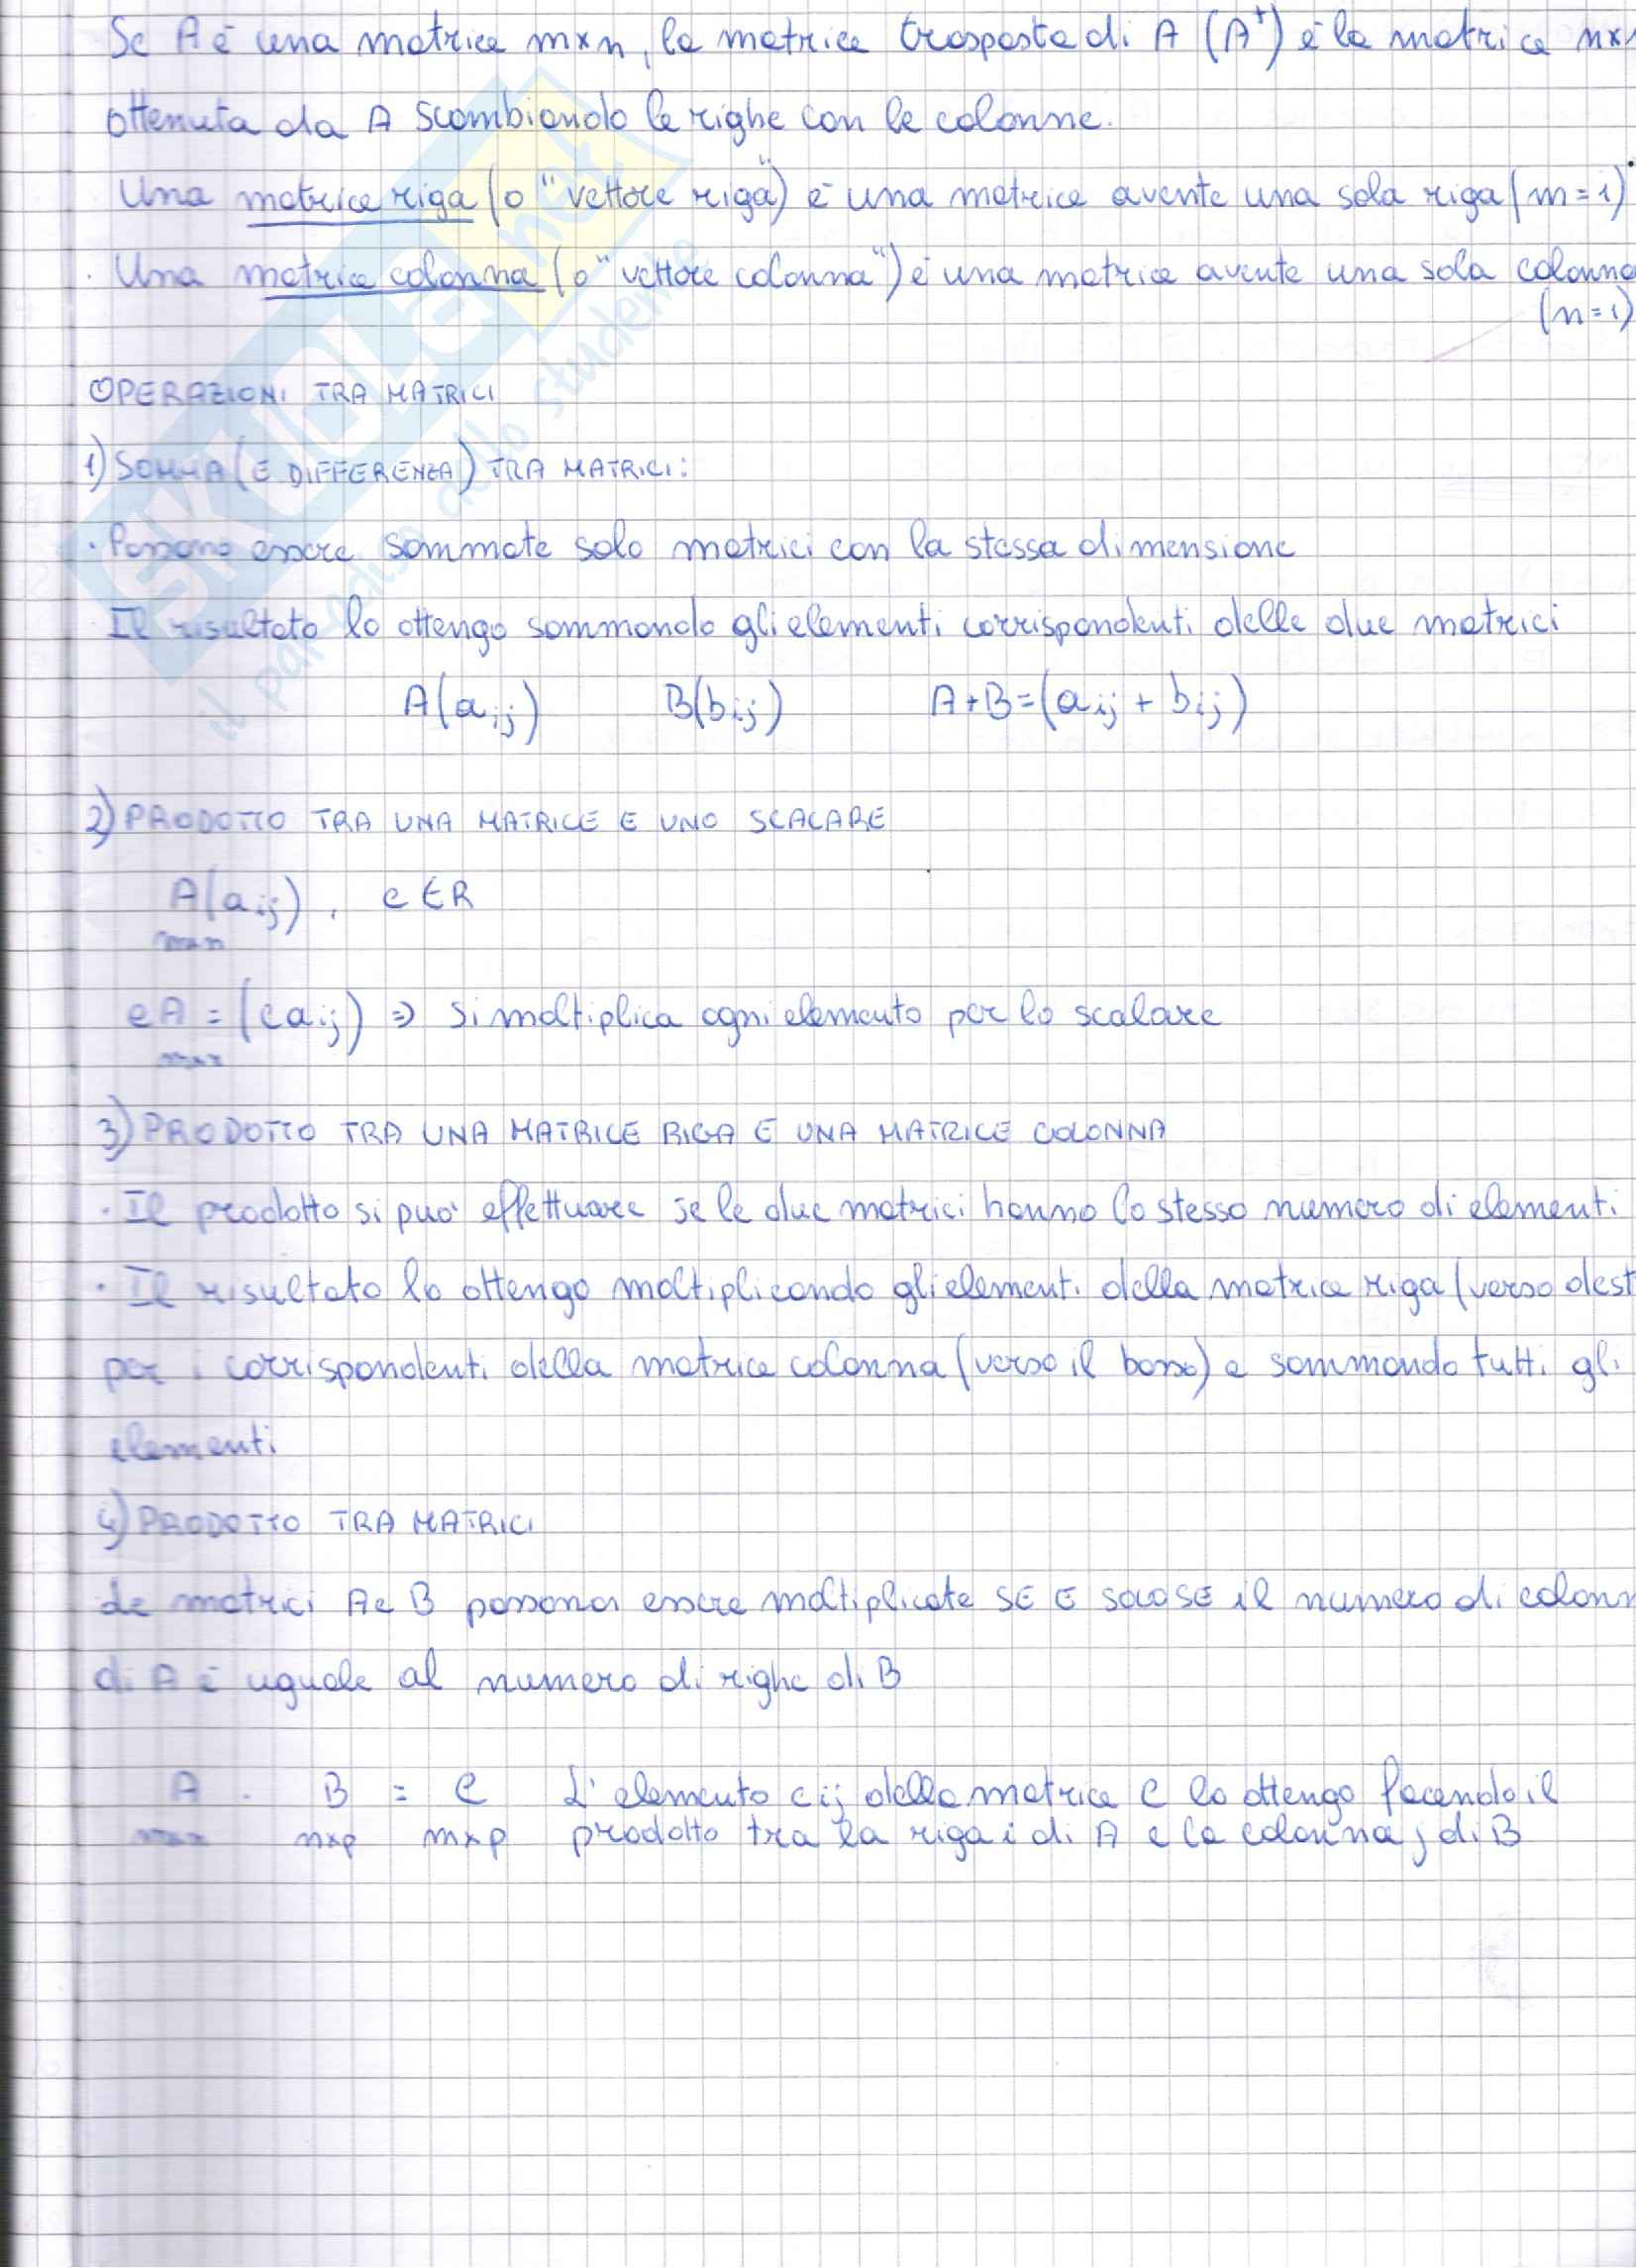 Se A è una matrice m×n, la matrice trasposta di A (Aᵗ) è la matrice n×
ottenuta da A scambiando le righe con le colonne.
Una matrice riga (o "vettore riga") è una matrice avente una sola riga (m=1)
· Una matrice colonna (o "vettore colonna") è una matrice avente una sola colonna
(n=1)
OPERAZIONI TRA MATRICI
1) SOMMA (E DIFFERENZA) TRA MATRICI:
· Possono essere sommate solo matrici con la stessa dimensione
Il risultato lo ottengo sommando gli elementi corrispondenti delle due matrici
A(aij) B(bij) A+B=(aij + bij)
2) PRODOTTO TRA UNA MATRICE E UNO SCALARE
A(aij), c∈R
m×n
cA = (caij) ⇒ si moltiplica ogni elemento per lo scalare
m×n
3) PRODOTTO TRA UNA MATRICE RIGA E UNA MATRICE COLONNA
· Il prodotto si può effettuare se le due matrici hanno lo stesso numero di elementi
· Il risultato lo ottengo moltiplicando gli elementi della matrice riga (verso dest
per i corrispondenti della matrice colonna (verso il basso) e sommando tutti gli
elementi
4) PRODOTTO TRA MATRICI
Le matrici A e B possono essere moltiplicate SE E SOLO SE il numero di colonn
di A è uguale al numero di righe di B
A · B = C L'elemento cij della matrice C lo ottengo facendo il
m×n n×p m×p prodotto tra la riga i di A e la colonna j di B
SKUOLA.net
il paradiso dello studente